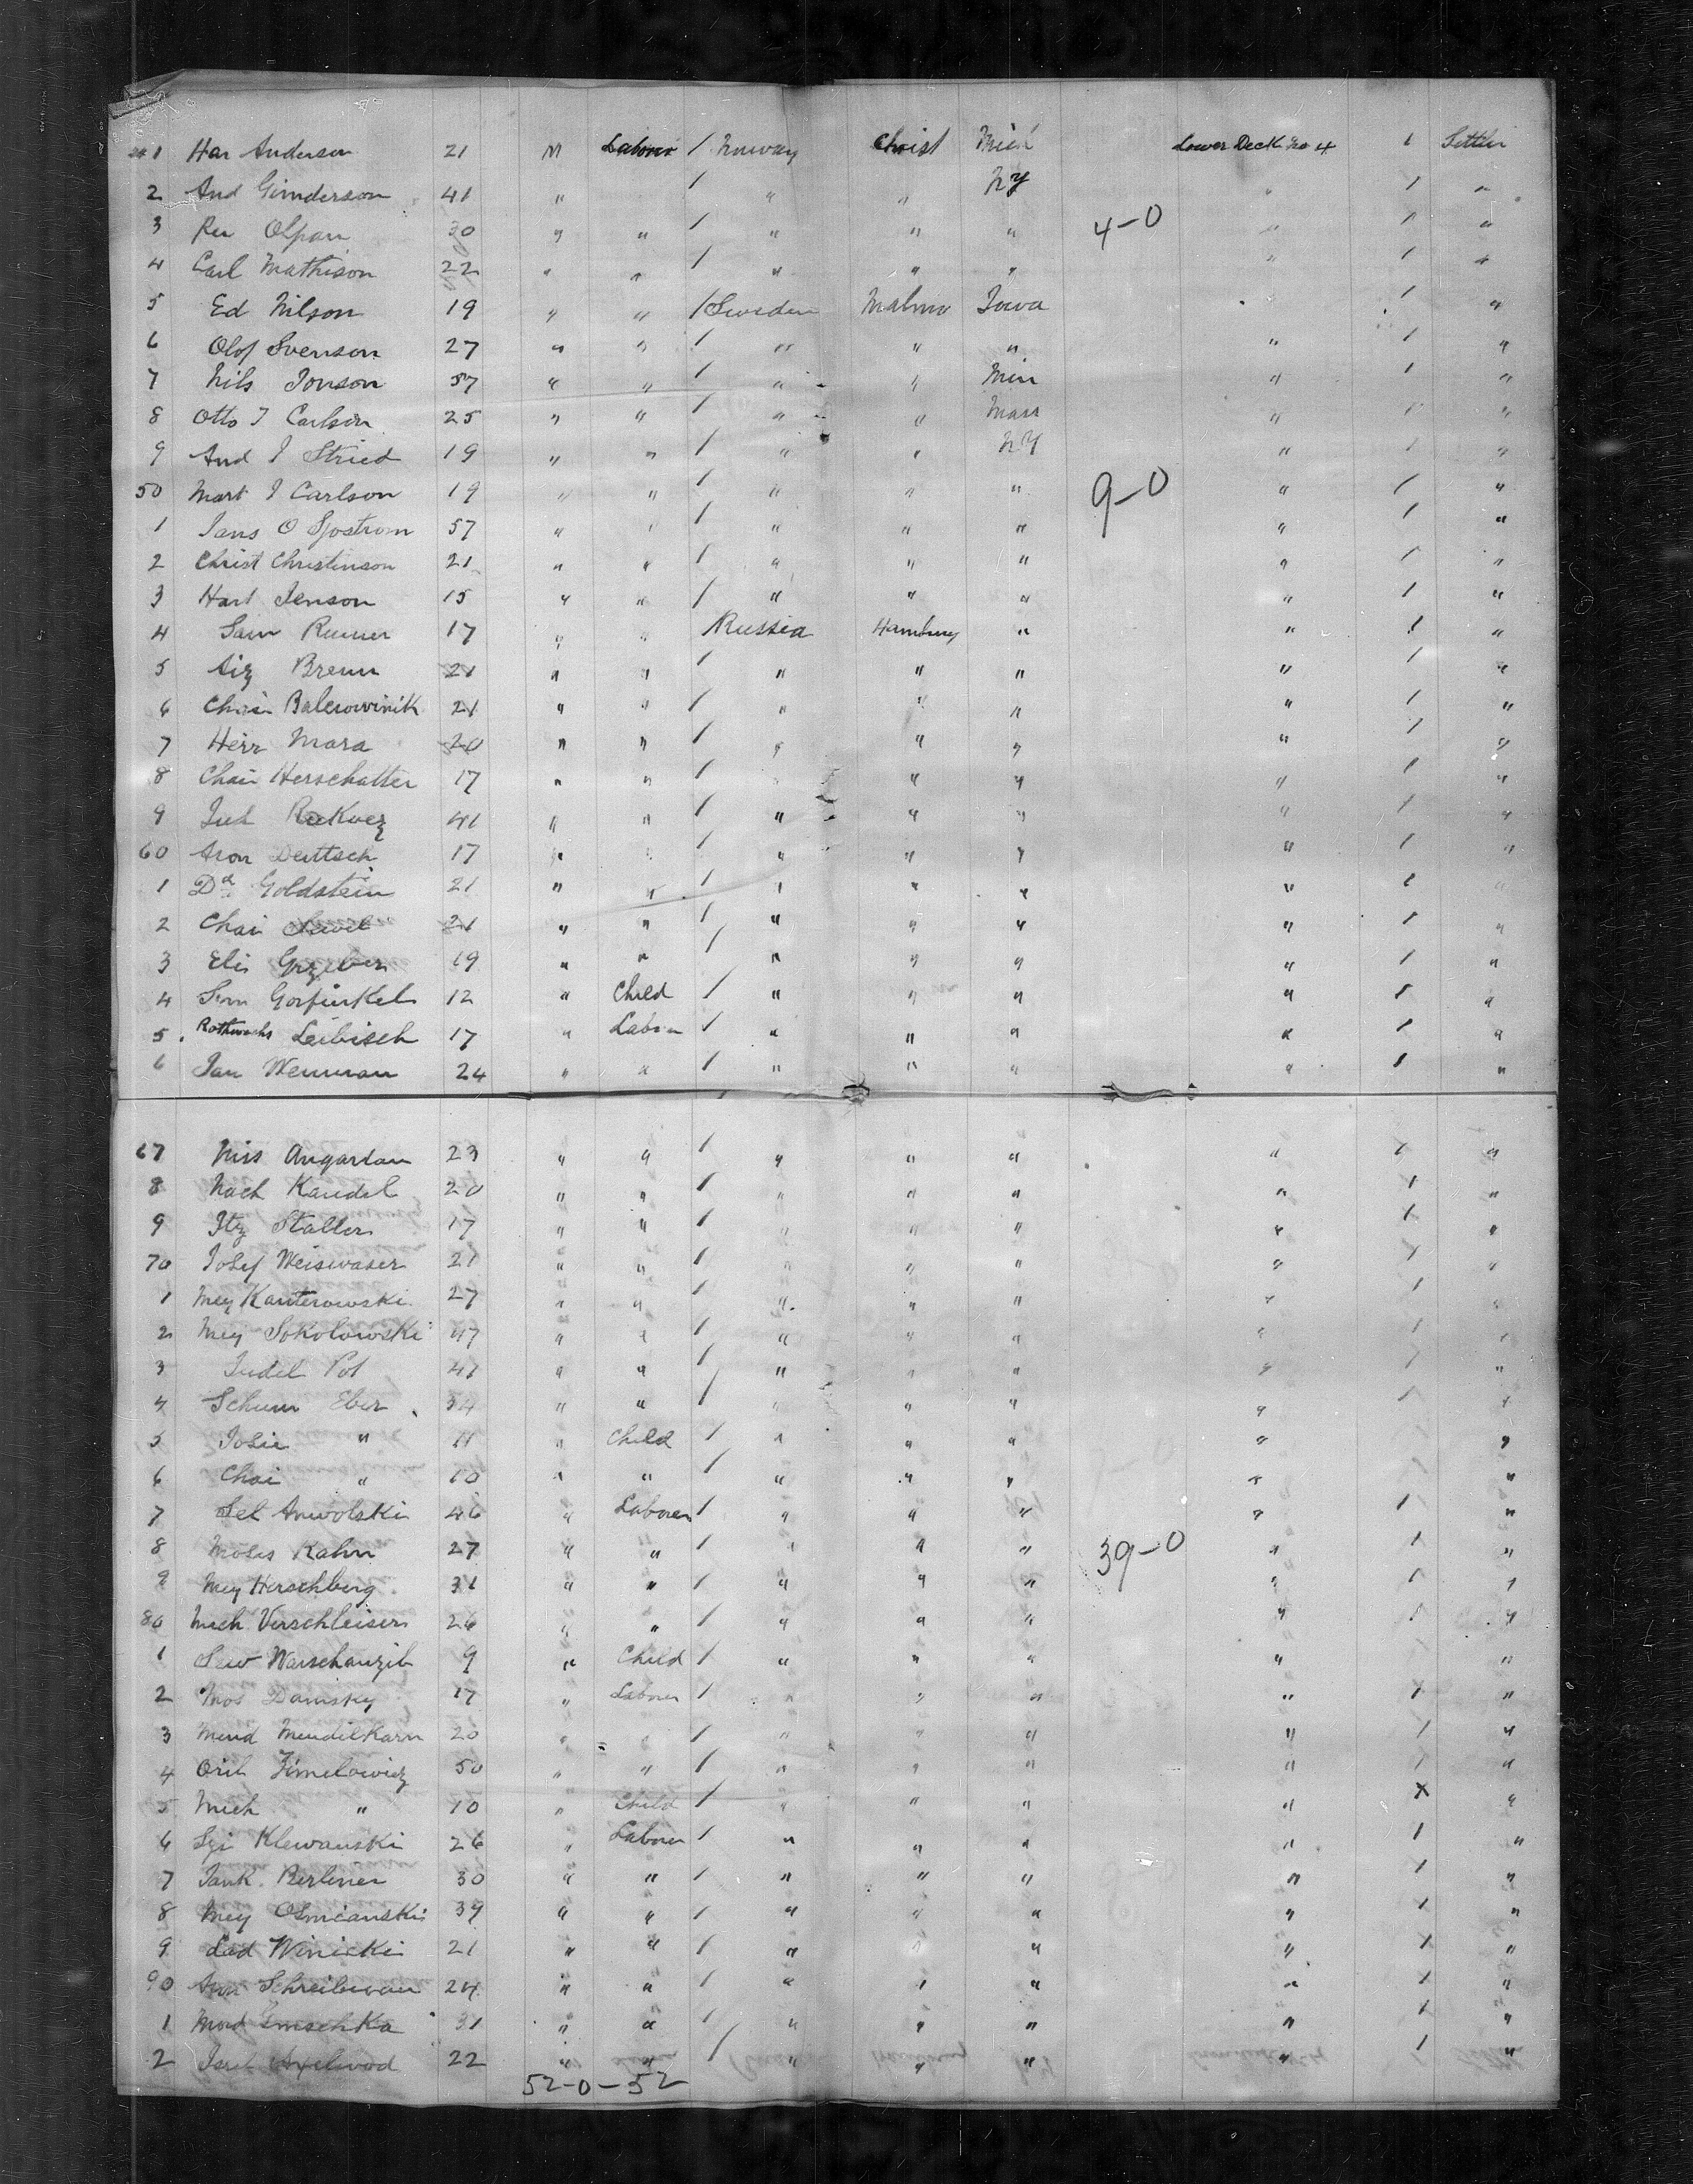 41 Har Anderson 21 M Laborer / Norway Christ Mich Lower Deck No 4 1 Settler
2 And Gunderson 41 " / " " NY " 1 "
3 Olfsan 30 " " / " " " 4-0 " 1 "
4 Carl Mathison 22 " " / " " " " 1 "
5 Ed Nilson 19 " " / Sweden Malmo Iowa 1 "
6 Olof Svenson 27 " " / " " " " 1 "
7 Nils Jonson 57 " " / " " Min " 1 "
8 Otto J Carlson 25 " " / " " Mass " 1 "
9 And J Stried 19 " " / " " NY " 1 "
50 Mart J Carlson 19 " " / " " " 9-0 " 1 "
1 Jans O Sjostrom 57 " " / " " " " 1 "
2 Christ Christinson 21 " " / " " " " 1 "
3 Hart Jenson 15 " " / " " " " 1 "
4 Sam 17 " " / Russia Hamburg " " 1 "
5 Aiz Breun 21 " " / " " " " 1 "
6 Chai Balerowinik 21 " " / " " " " 1 "
7 Herr Mara 20 " " / " " " " 1 "
8 Chai Herschatter 17 " " / " " " " 1 "
9 41 " " / " " " " 1 "
60 Aron Deutsch 17 " " / " " " " 1 "
1 Dd Goldstein 21 " " / " " " " 1 "
2 Chai 21 " " / " " " " 1 "
3 Elis 19 " " / " " " " 1 "
4 Sim Gorfinkel 12 " Child / " " " " 1 "
5 Rothwachs Leibisch 17 " Labor / " " " " 1 "
6 Jan Wenman 24 " " / " " " " 1 "
67 Niss Angartan 23 " " / " " " " 1 "
8 Nach Kandel 20 " " / " " " " 1 "
9 Itz Staller 17 " " / " " " " 1 "
70 Josef Weiswaser 21 " " / " " " " 1 "
1 Mey Kanterowski 27 " " / " " " " 1 "
2 Mey Sokolowski 47 " " / " " " " 1 "
3 Judel Pot 41 " " / " " " " 1 "
4 Schum Eber 34 " " / " " " " 1 "
5 Josie " 11 " Child / " " " " "
6 Chai " 10 " " / " " " " "
7 Sel Anwolski 46 " Laborer / " " " " 1 "
8 Moses Kahn 27 " " / " " " 39-0 " 1 "
9 Mey Herschberg 31 " " / " " " " 1 "
80 Mech Verschleiser 26 " " / " " " " 1 "
1 9 " Child / " " " " "
2 Mos Danisky 17 " Laborer / " " " " 1 "
3 Mend Mendelkorn 20 " " / " " " " 1 "
4 50 " " / " " " " 1 "
5 Mich " 10 " Child / " " " " X "
6 Szi Klewanski 26 " Laborer / " " " " 1 "
7 Jank Berliner 30 " " / " " " " 1 "
8 Mey Osmianski 39 " " / " " " " 1 "
9 Lad Winicki 21 " " / " " " " 1 "
90 Schreibman 24 " " / " " " " 1 "
1 Mord 31 " " / " " " " 1 "
2 Axelwod 22 " " / " " " " 1 "
52-0-52